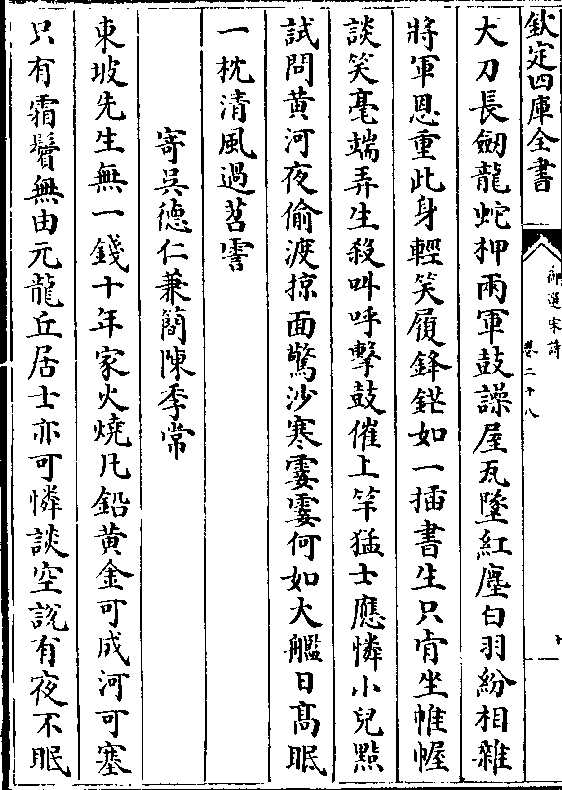 欽定四庫全書
御選宋詩
卷二十八
十
大刀長劒龍蛇柙兩軍鼓譟屋瓦墜紅塵白羽紛相雜
將軍恩重此身輕笑履鋒鋩如一插書生只肯坐帷幄
談笑毫端弄生殺叫呼擊鼓催上竿猛士應憐小兒黠
試問黄河夜偷渡掠面驚沙寒霎霎何如大艦日髙眠
一枕清風過苕霅
寄呉德仁兼簡陳季常
東坡先生無一錢十年家火燒凡鉛黄金可成河可塞
只有霜鬢無由元龍丘居士亦可憐談空說有夜不眠